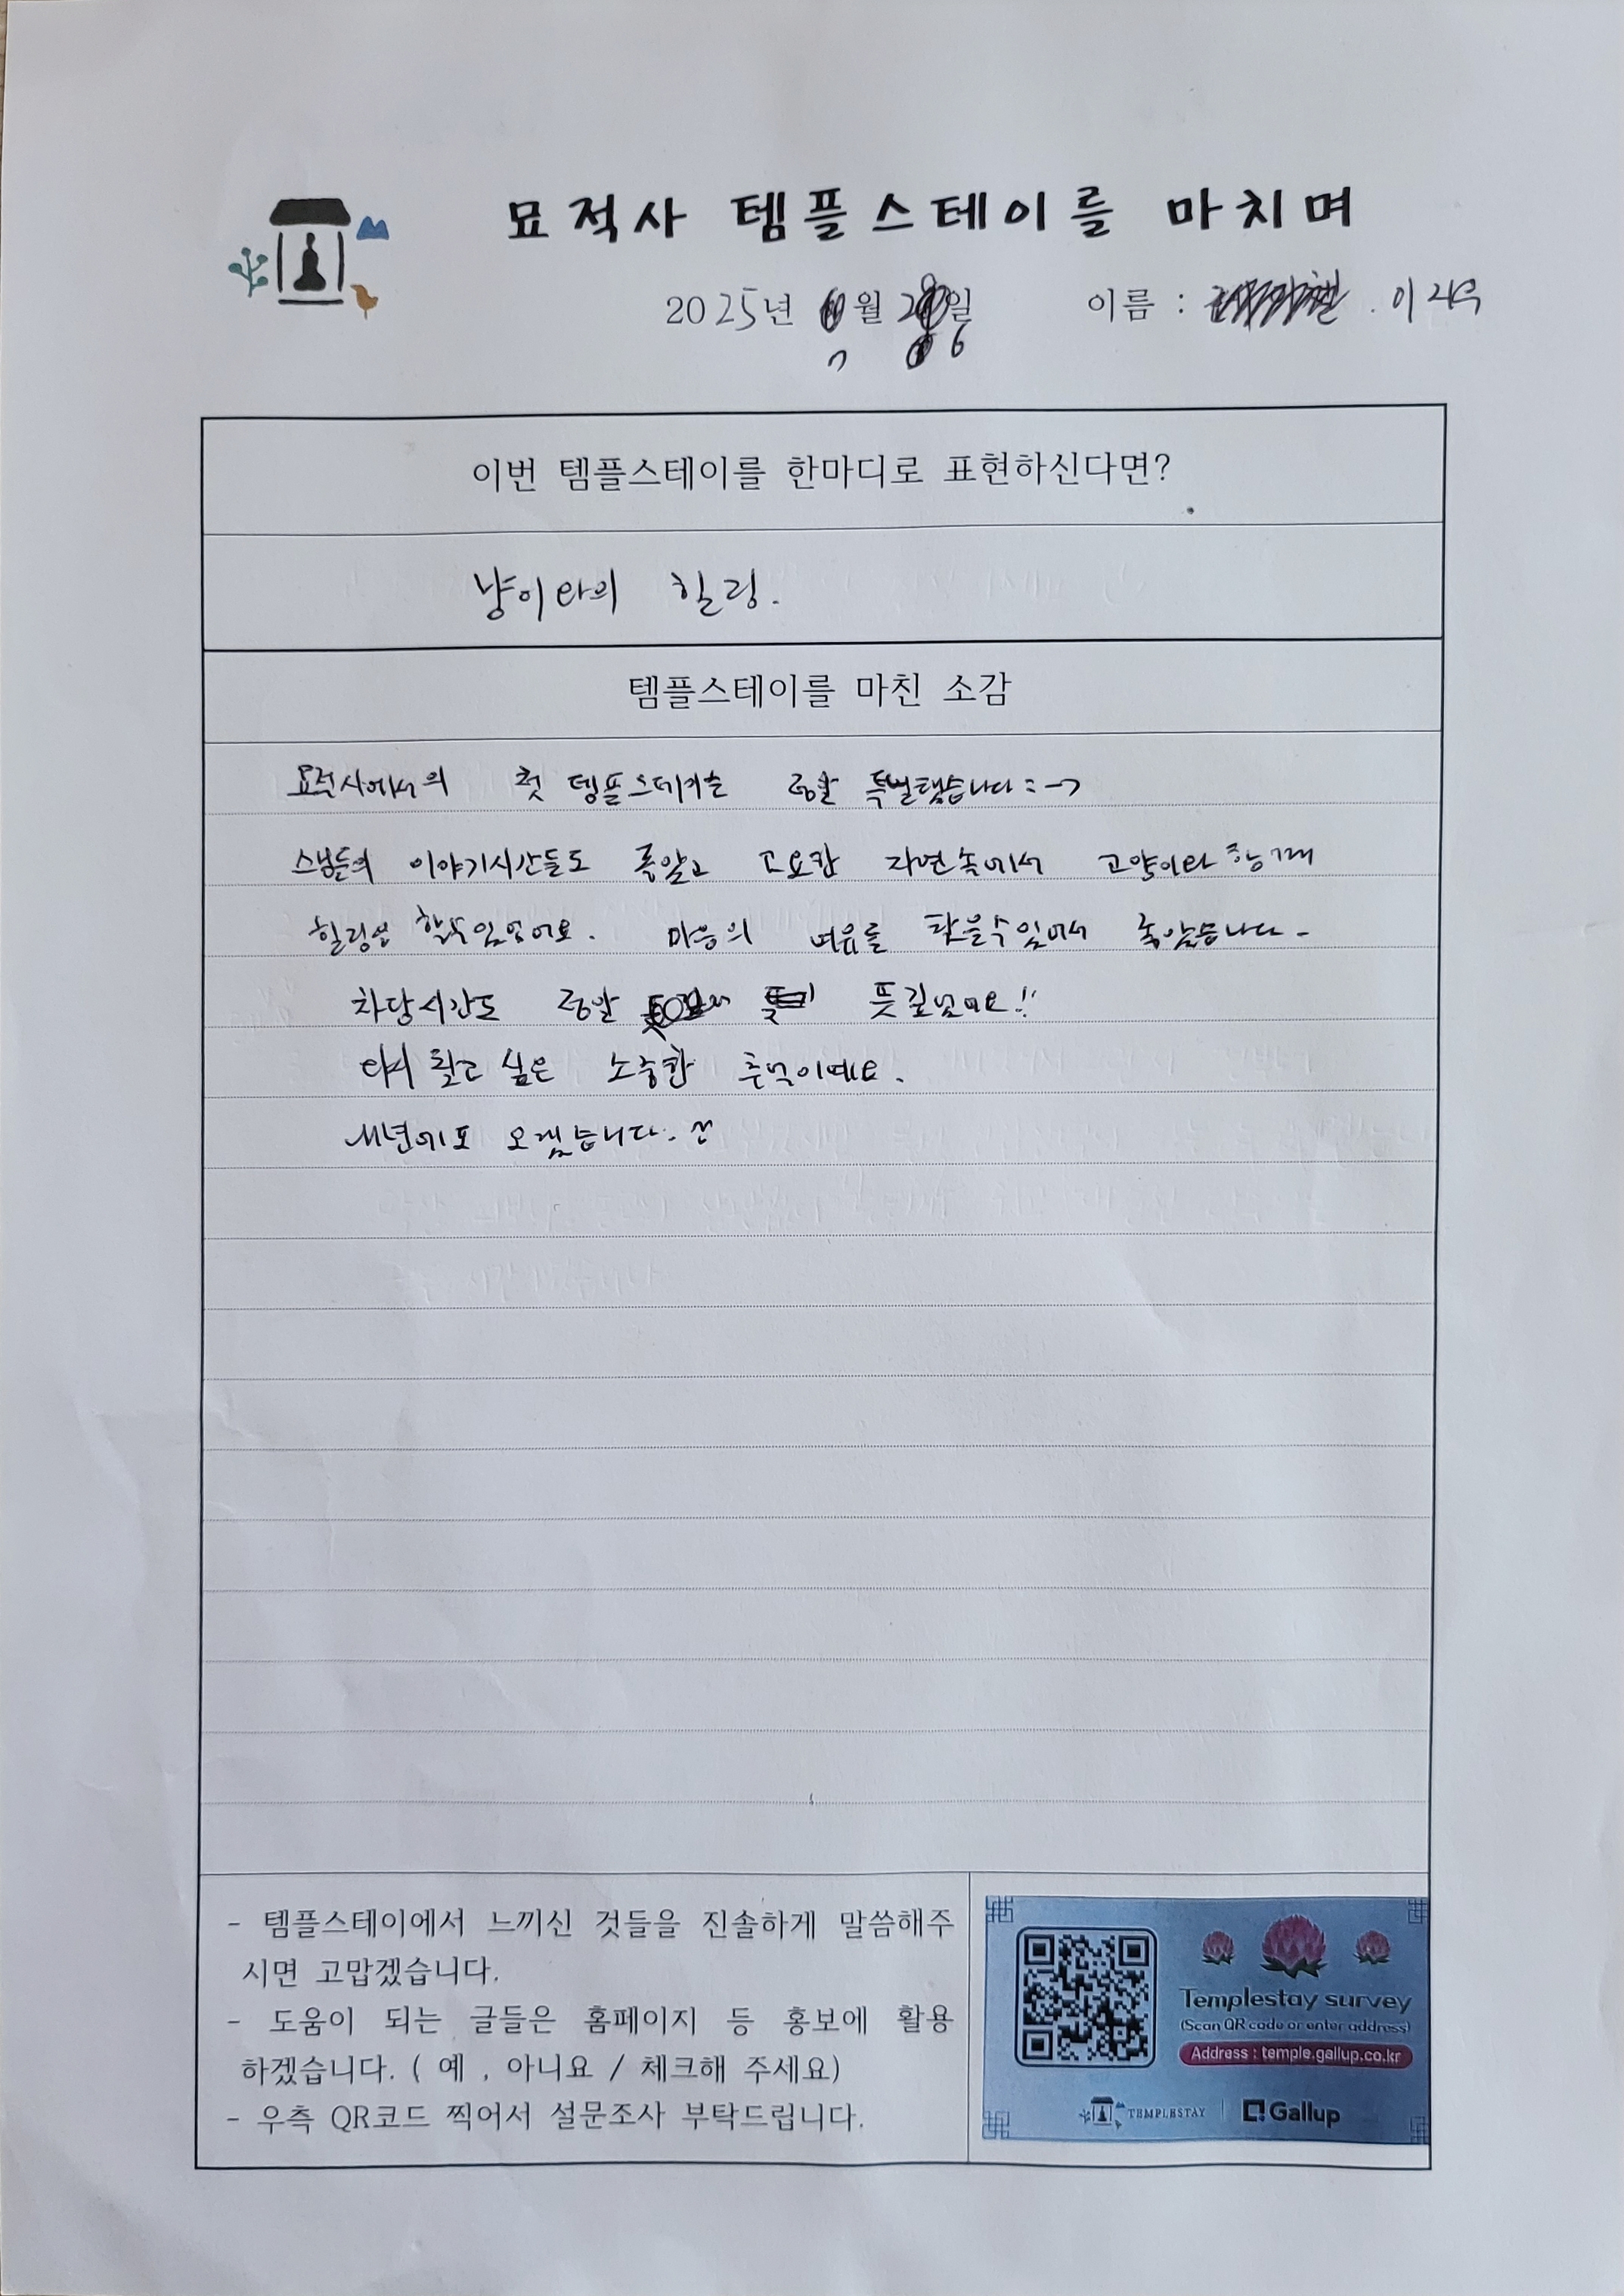 묘적사 템플스테이를 마치며
2025년 월 2일 이름 : 이
7 6
이번 템플스테이를 한마디로 표현하신다면?
냥이와의 힐링.
템플스테이를 마친 소감
묘적사에서의 첫 템플스테이는 정말 특별했습니다 :->
스님들의 이야기시간들도 좋았고 고요한 자연속에서 고양이와 함께
힐링을 할수있었어요. 마음의 여유를 찾을수있어서 좋았습니다-
차담시간도 정말 뜻깊었어요!!
다시 찾고 싶은 소중한 추억이예요.
내년에도 오겠습니다. ^^
- 템플스테이에서 느끼신 것들을 진솔하게 말씀해주
시면 고맙겠습니다.
- 도움이 되는 글들은 홈페이지 등 홍보에 활용
하겠습니다. ( 예 , 아니요 / 체크해 주세요)
- 우측 QR코드 찍어서 설문조사 부탁드립니다.
Templestay survey
(Scan QR code or enter address)
Address : temple.gallup.co.kr
TEMPLESTAY Gallup